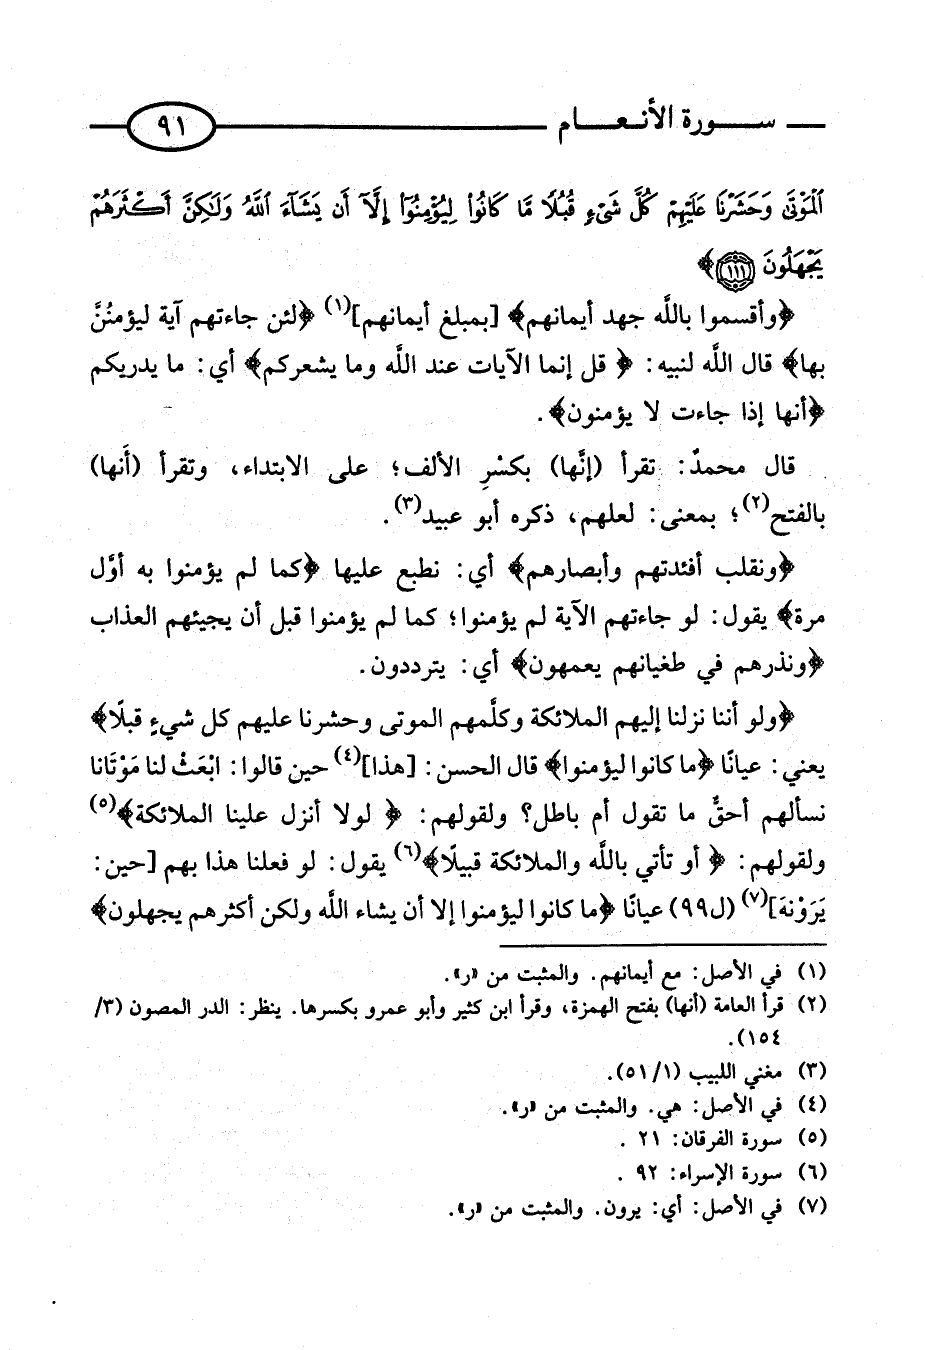 سورة الأنعام
٩١
ٱلۡمَوۡتَىٰ وَحَشَرۡنَا عَلَيۡهِمۡ كُلَّ شَيۡءٖ قُبُلٗا مَّا كَانُواْ لِيُؤۡمِنُوٓاْ إِلَّآ أَن يَشَآءَ ٱللَّهُ وَلَٰكِنَّ أَكۡثَرَهُمۡ
يَجۡهَلُونَ ١١١﴾
﴿وأقسموا باللَّه جهد أيمانهم﴾ [بمبلغ أيمانهم](١) ﴿لئن جاءتهم آية ليؤمنُنَّ
بها﴾ قال الله لنبيه: ﴿ قل إنما الآيات عند اللَّه وما يشعركم﴾ أي: ما يدريكم
﴿أنها إذا جاءت لا يؤمنون﴾.
قال محمدٌ: تقرأ (إنَّها) بكسْرِ الألف؛ على الابتداء، وتقرأ (أَنها)
بالفتح(٢)؛ بمعنى: لعلهم، ذكره أبو عبيد(٣).
﴿ونقلب أفئدتهم وأبصارهم﴾ أي: نطبع عليها ﴿كما لم يؤمنوا به أوَّل
مرة﴾ يقول: لو جاءتهم الآية لم يؤمنوا؛ كما لم يؤمنوا قبل أن يجيئهم العذاب
﴿ونذرهم في طغيانهم يعمهون﴾ أي: يترددون.
﴿ولو أننا نزلنا إليهم الملائكة وكلَّمهم الموتى وحشرنا عليهم كل شيءٍ قبلًا﴾
يعني: عيانًا ﴿ما كانوا ليؤمنوا﴾ قال الحسن: [هذا](٤) حين قالوا: ابْعَثْ لنا مَوْتَانا
نسألهم أحقٌّ ما تقول أم باطل؟ ولقولهم: ﴿ لولا أنزل علينا الملائكة﴾(٥)
ولقولهم: ﴿ أو تأتي باللَّه والملائكة قبيلًا﴾(٦) يقول: لو فعلنا هذا بهم [حين:
يَرَوْنهَ](٧) (ل٩٩) عيانًا ﴿ما كانوا ليؤمنوا إلا أن يشاء الله ولكن أكثرهم يجهلون﴾
(١) في الأصل: مع أيمانهم. والمثبت من «ر».
(٢) قرأ العامة (أنها) بفتح الهمزة، وقرأ ابن كثير وأبو عمرو بكسرها. ينظر: الدر المصون (٣/
١٥٤).
(٣) مغني اللبيب (٥١/١).
(٤) في الأصل: هي. والمثبت من «ر».
(٥) سورة الفرقان: ٢١ .
(٦) سورة الإسراء: ٩٢ .
(٧) في الأصل: أي: يرون. والمثبت من «ر».